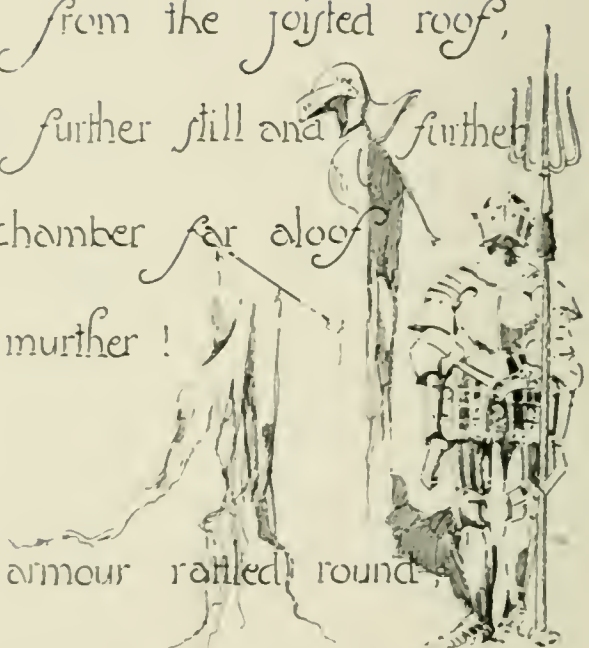 from the joisted roof,
further still and further
chamber far aloof
murther !
armour rattled round ;